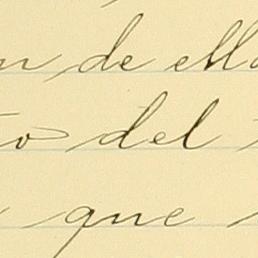 de ella
del
que